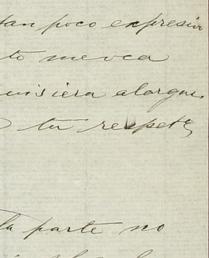 tan poco expresiv
to merca
uisiera alargu
tu respet
la parte no